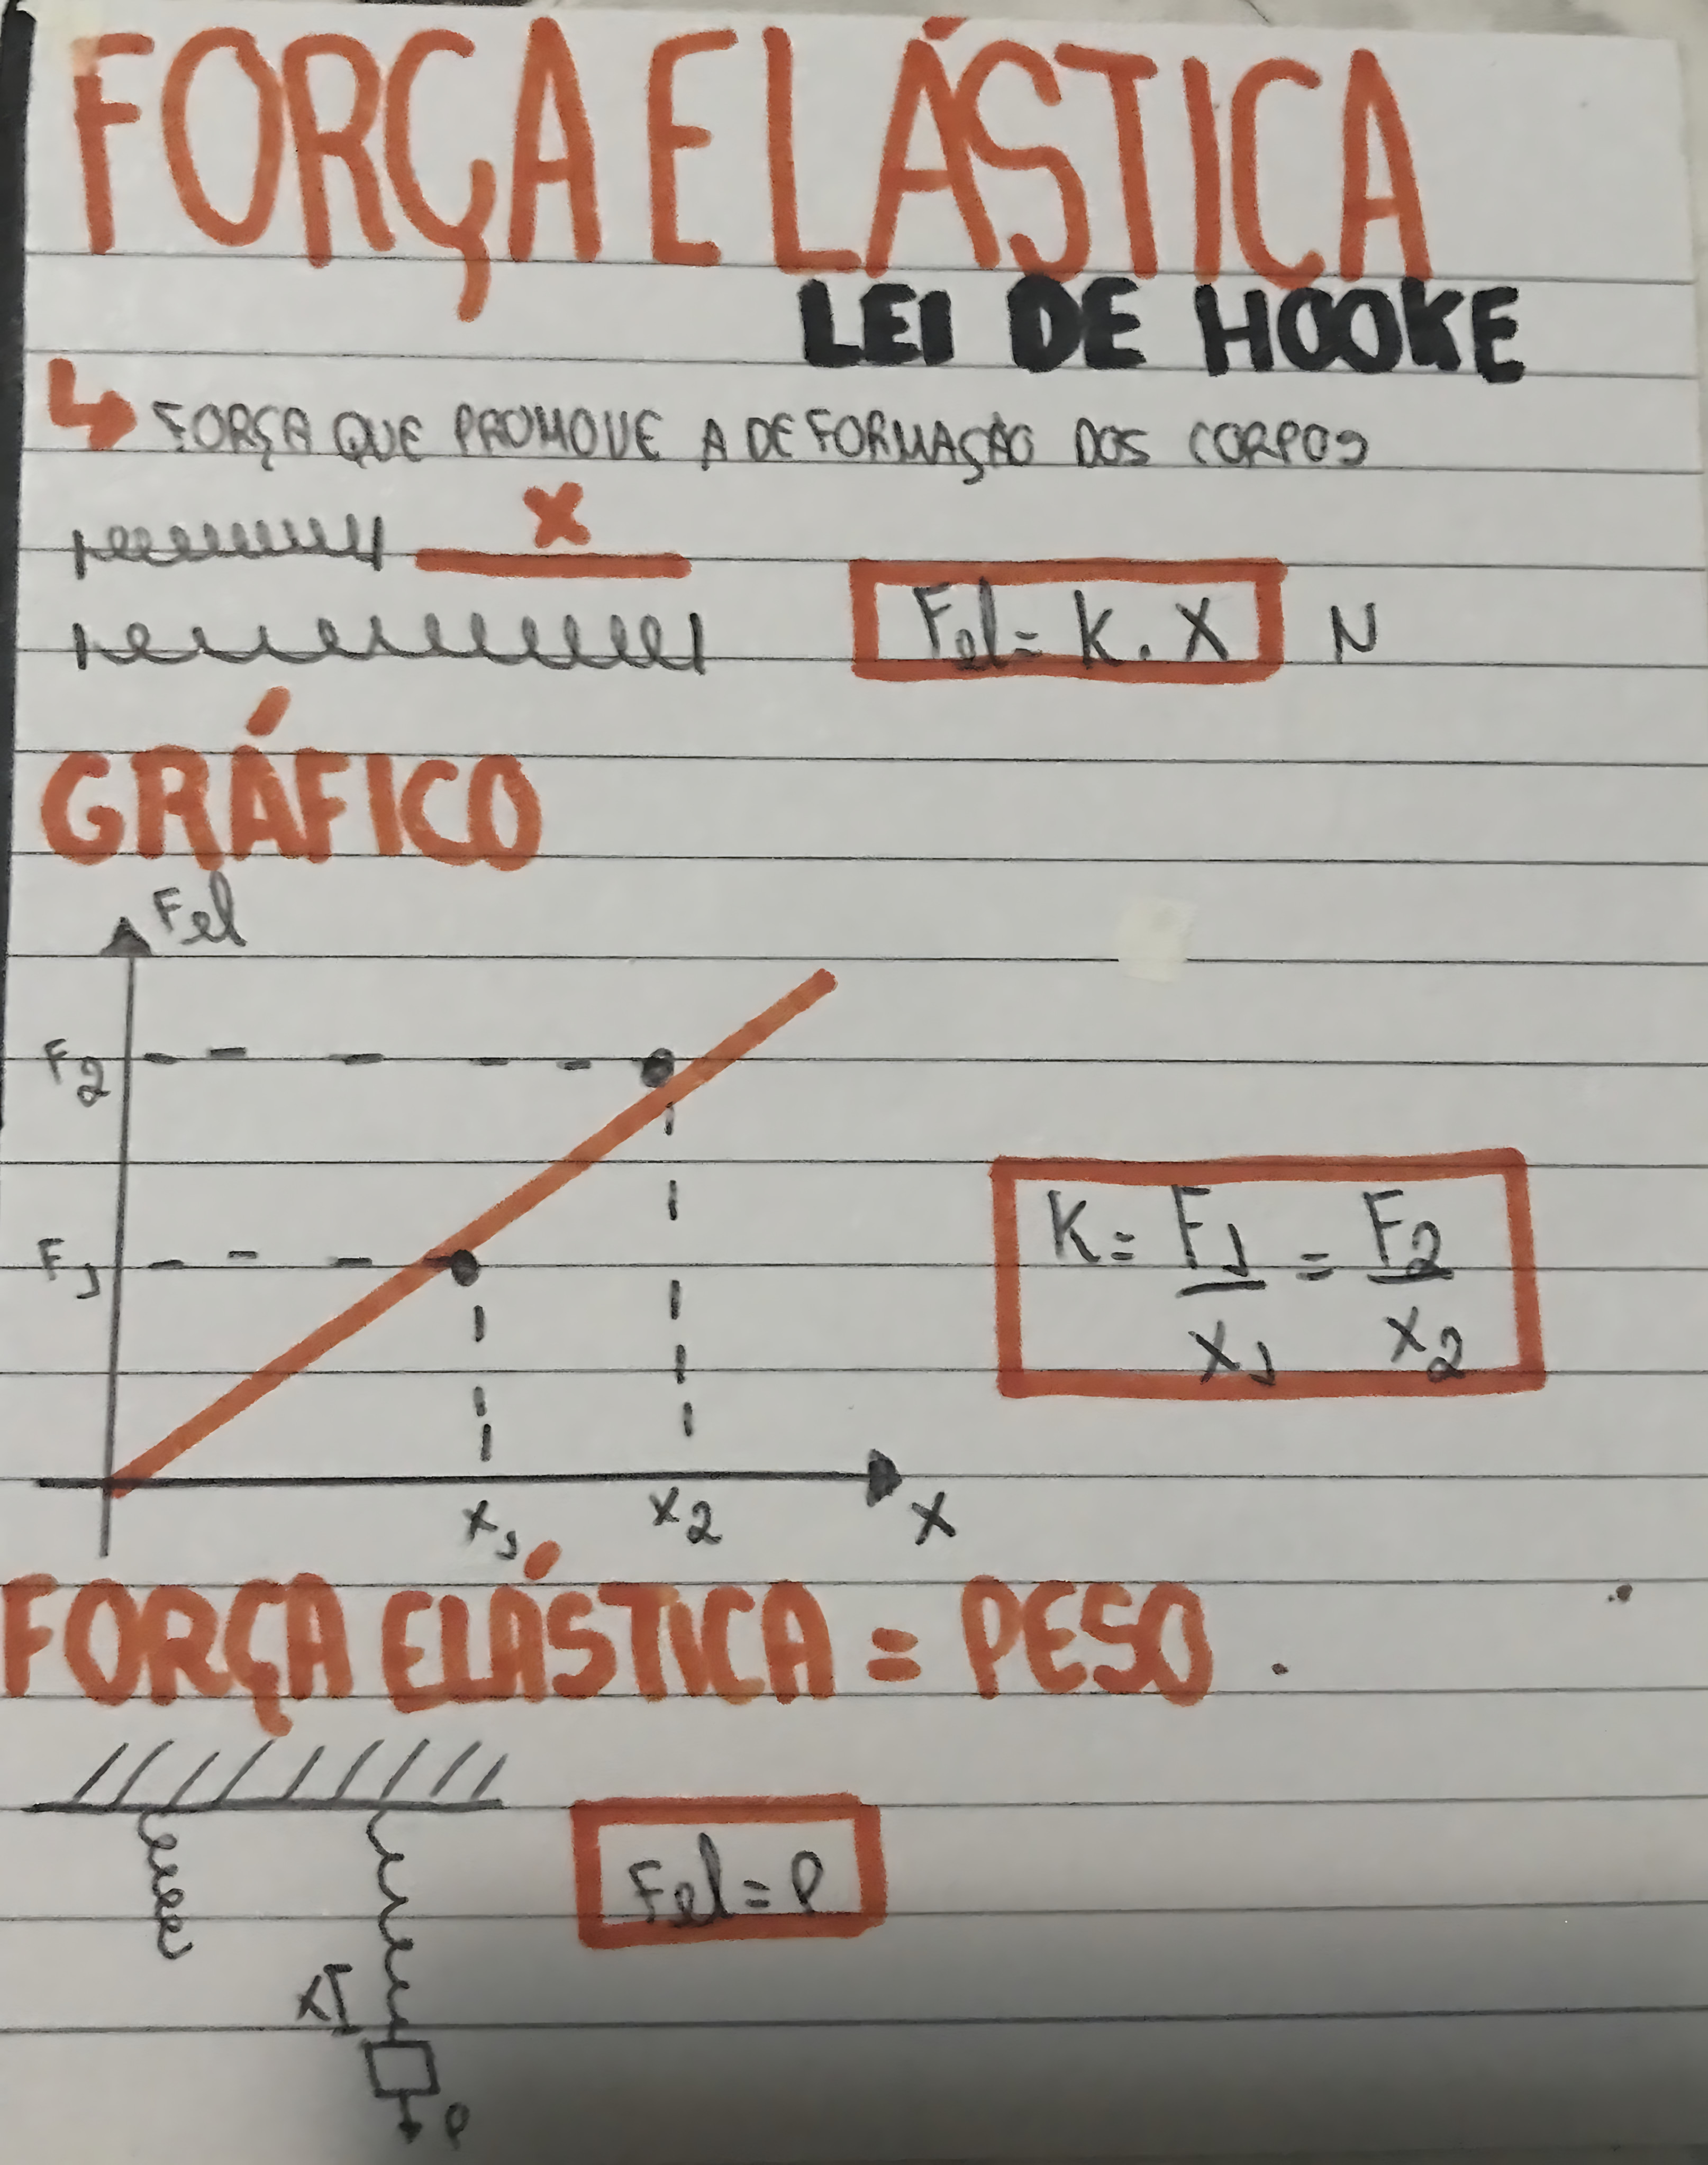 FORÇA ELÁSTICA
LEI DE HOOKE
↳ FORÇA QUE PROMOVE A DEFORMAÇÃO DOS CORPOS
X
Fel = K . X N
GRÁFICO
Fel
F2
F1
K = F1/X1 = F2/X2
X1 X2 X
FORÇA ELÁSTICA = PESO .
Fel = P
X
P